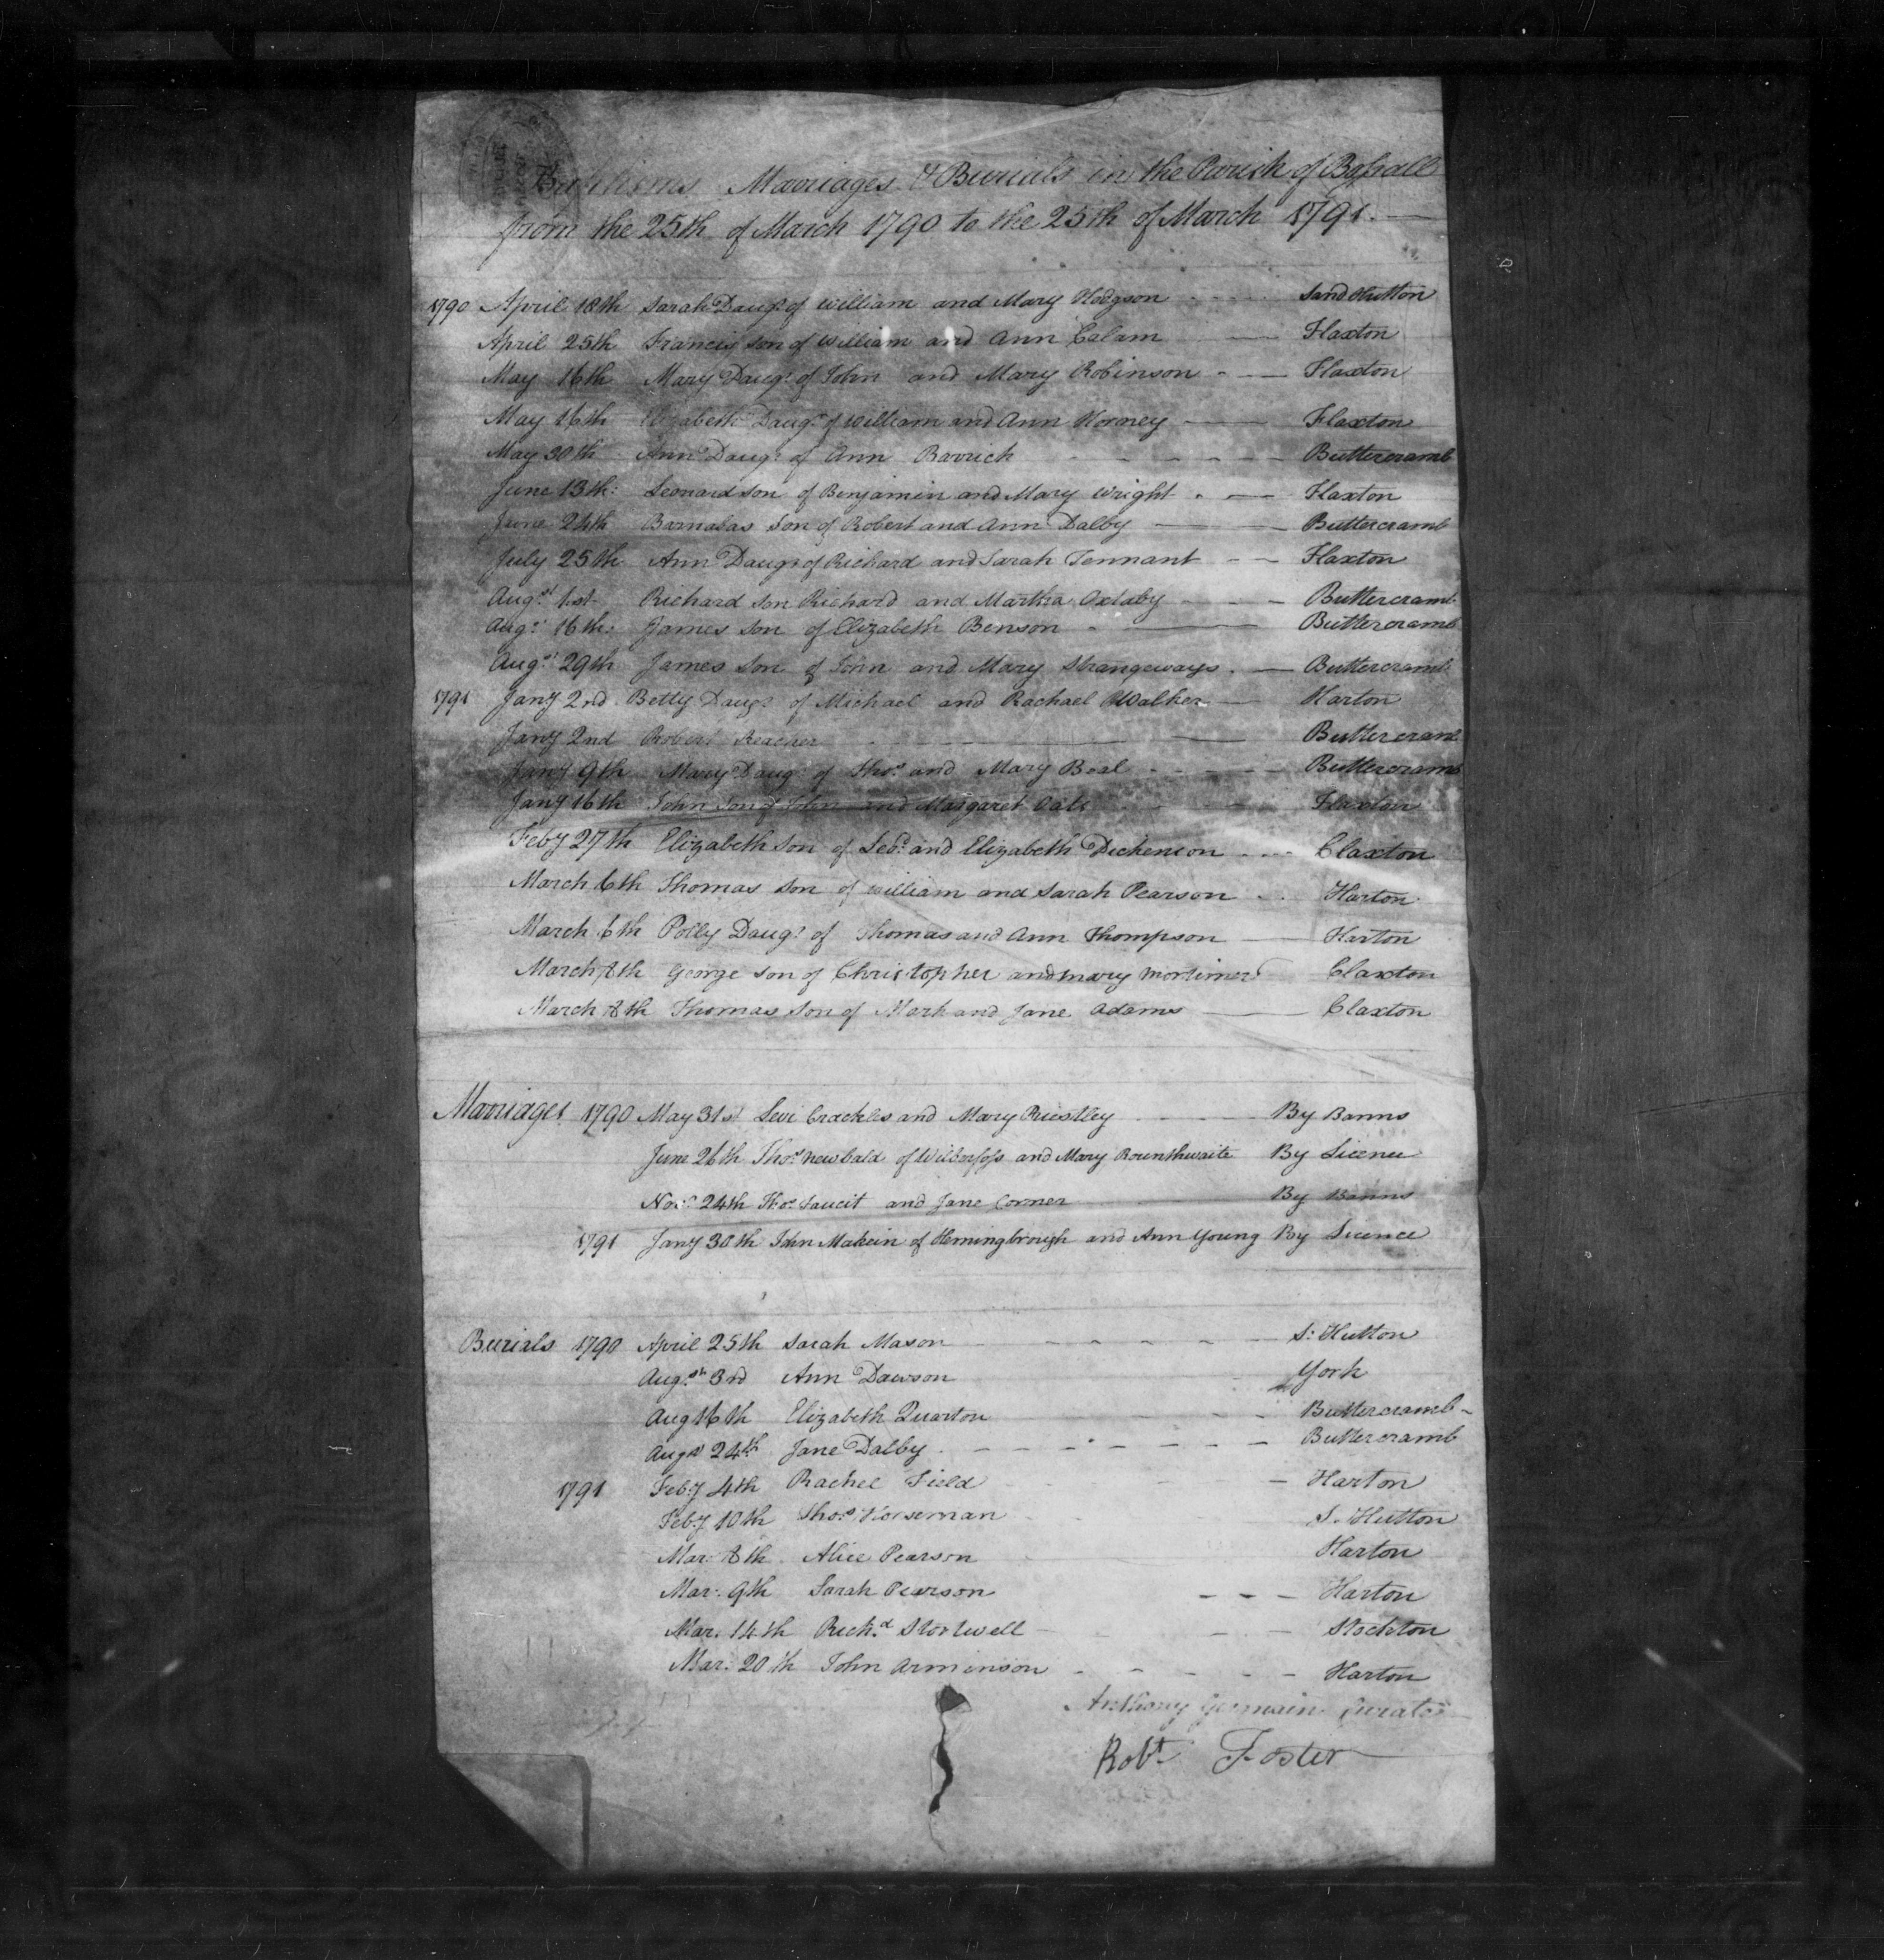 Baptisms Marriages & Burials in the Parish of Bossall
from the 25th of March 1790 to the 25th of March 1791.
1790 April 18th Sarah Daugr. of William and Mary Hodgson Sand Hutton
April 25th Francis Son of William and Ann Calam Flaxton
May 16th Mary Daugr. of John and Mary Robinson Flaxton
May 16th Elizabeth Daugr. of William and Ann Horney Flaxton
May 30th Ann Daugr. of Ann Barrick Buttercramb
June 13th: Leonard Son of Benjamin and Mary Wright Flaxton
June 24th Barnabas Son of Robert and Ann Dalby Buttercramb
July 25th Ann Daugr of Richard and Sarah Tennant Flaxton
Augst. 1st. Richard Son Richard and Martha Oxtaby Buttercramb
Augst. 16th: James Son of Elizabeth Benson Buttercramb
Augst. 29th James Son of John and Mary Strangeways Buttercramb
1791 Jany 2nd Betty Daugr. of Michael and Rachael Walker Harton
Jany 2nd Robert Reacher Buttercramb
Jany 9th Mary Daugr. of Thos. and Mary Beal Buttercramb
Jany 16th John Son of John and Margaret Oats Flaxton
Feby 27th Elizabeth Son of Sebn. and Elizabeth Dickenson Claxton
March 6th Thomas Son of William and Sarah Pearson Harton
March 6th Polly Daugr. of Thomas and Ann Thompson Harton
March 8th George Son of Christopher and mary mortimer Claxton
March 8th Thomas Son of Mark and Jane Adams Claxton
Marriages 1790 May 31st Levi Crackles and Mary Priestley By Banns
June 26th Thos. newbald of Wilberfoss and Mary Rounthwaite By Licence
Novr. 24th Thos. Faucit and Jane Corner By Banns
1791 Jany 30th John Makein of Hemingbrough and Ann Young By Licence
Burials 1790 April 25th Sarah Mason S: Hutton
Augst. 3rd Ann Dawson York
Aug 16th Elizabeth Quarton Buttercramb
Augst 24th Jane Dalby Buttercramb
1791 Feby 4th Rachel Field Harton
Feby 10th Thos. Horseman S. Hutton
Mar: 8th Alice Pearson Harton
Mar: 9th Sarah Pearson Harton
Mar. 14th Richd. Stortwell Stockton
Mar: 20th John Armenson Harton
Anthony Germain Curate
Robt. Foster